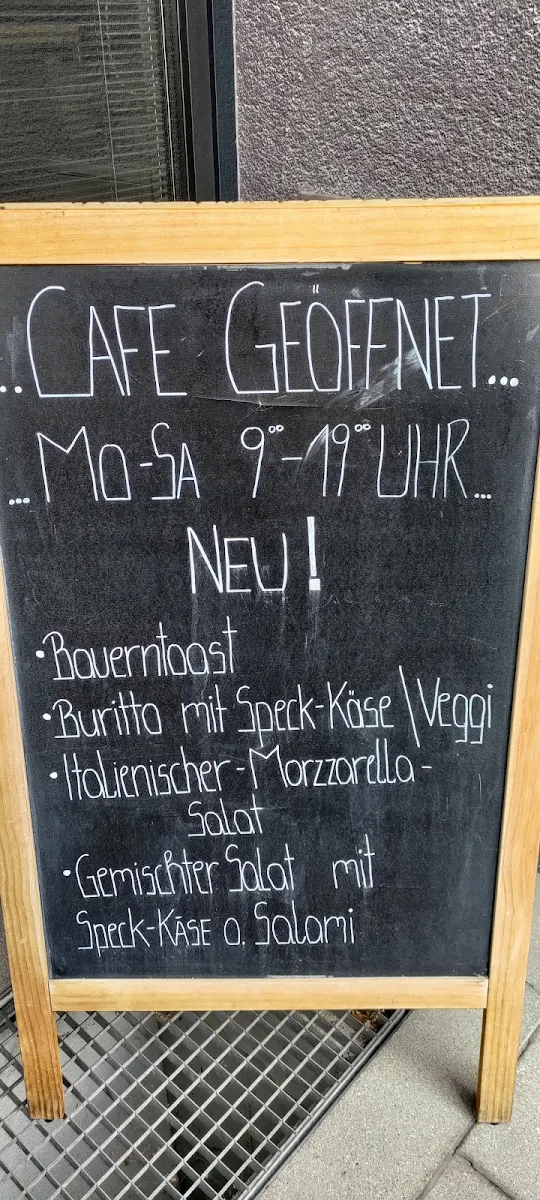 ...CAFE GEÖFFNET...
...MO-SA 9⁰⁰-19⁰⁰ UHR...
NEU!
•Bauerntoast
•Buritto mit Speck-Käse\Veggi
•Italienischer-Morzzarella-
Salat
•Gemischter Salat mit
Speck-KÄSE o. Salami